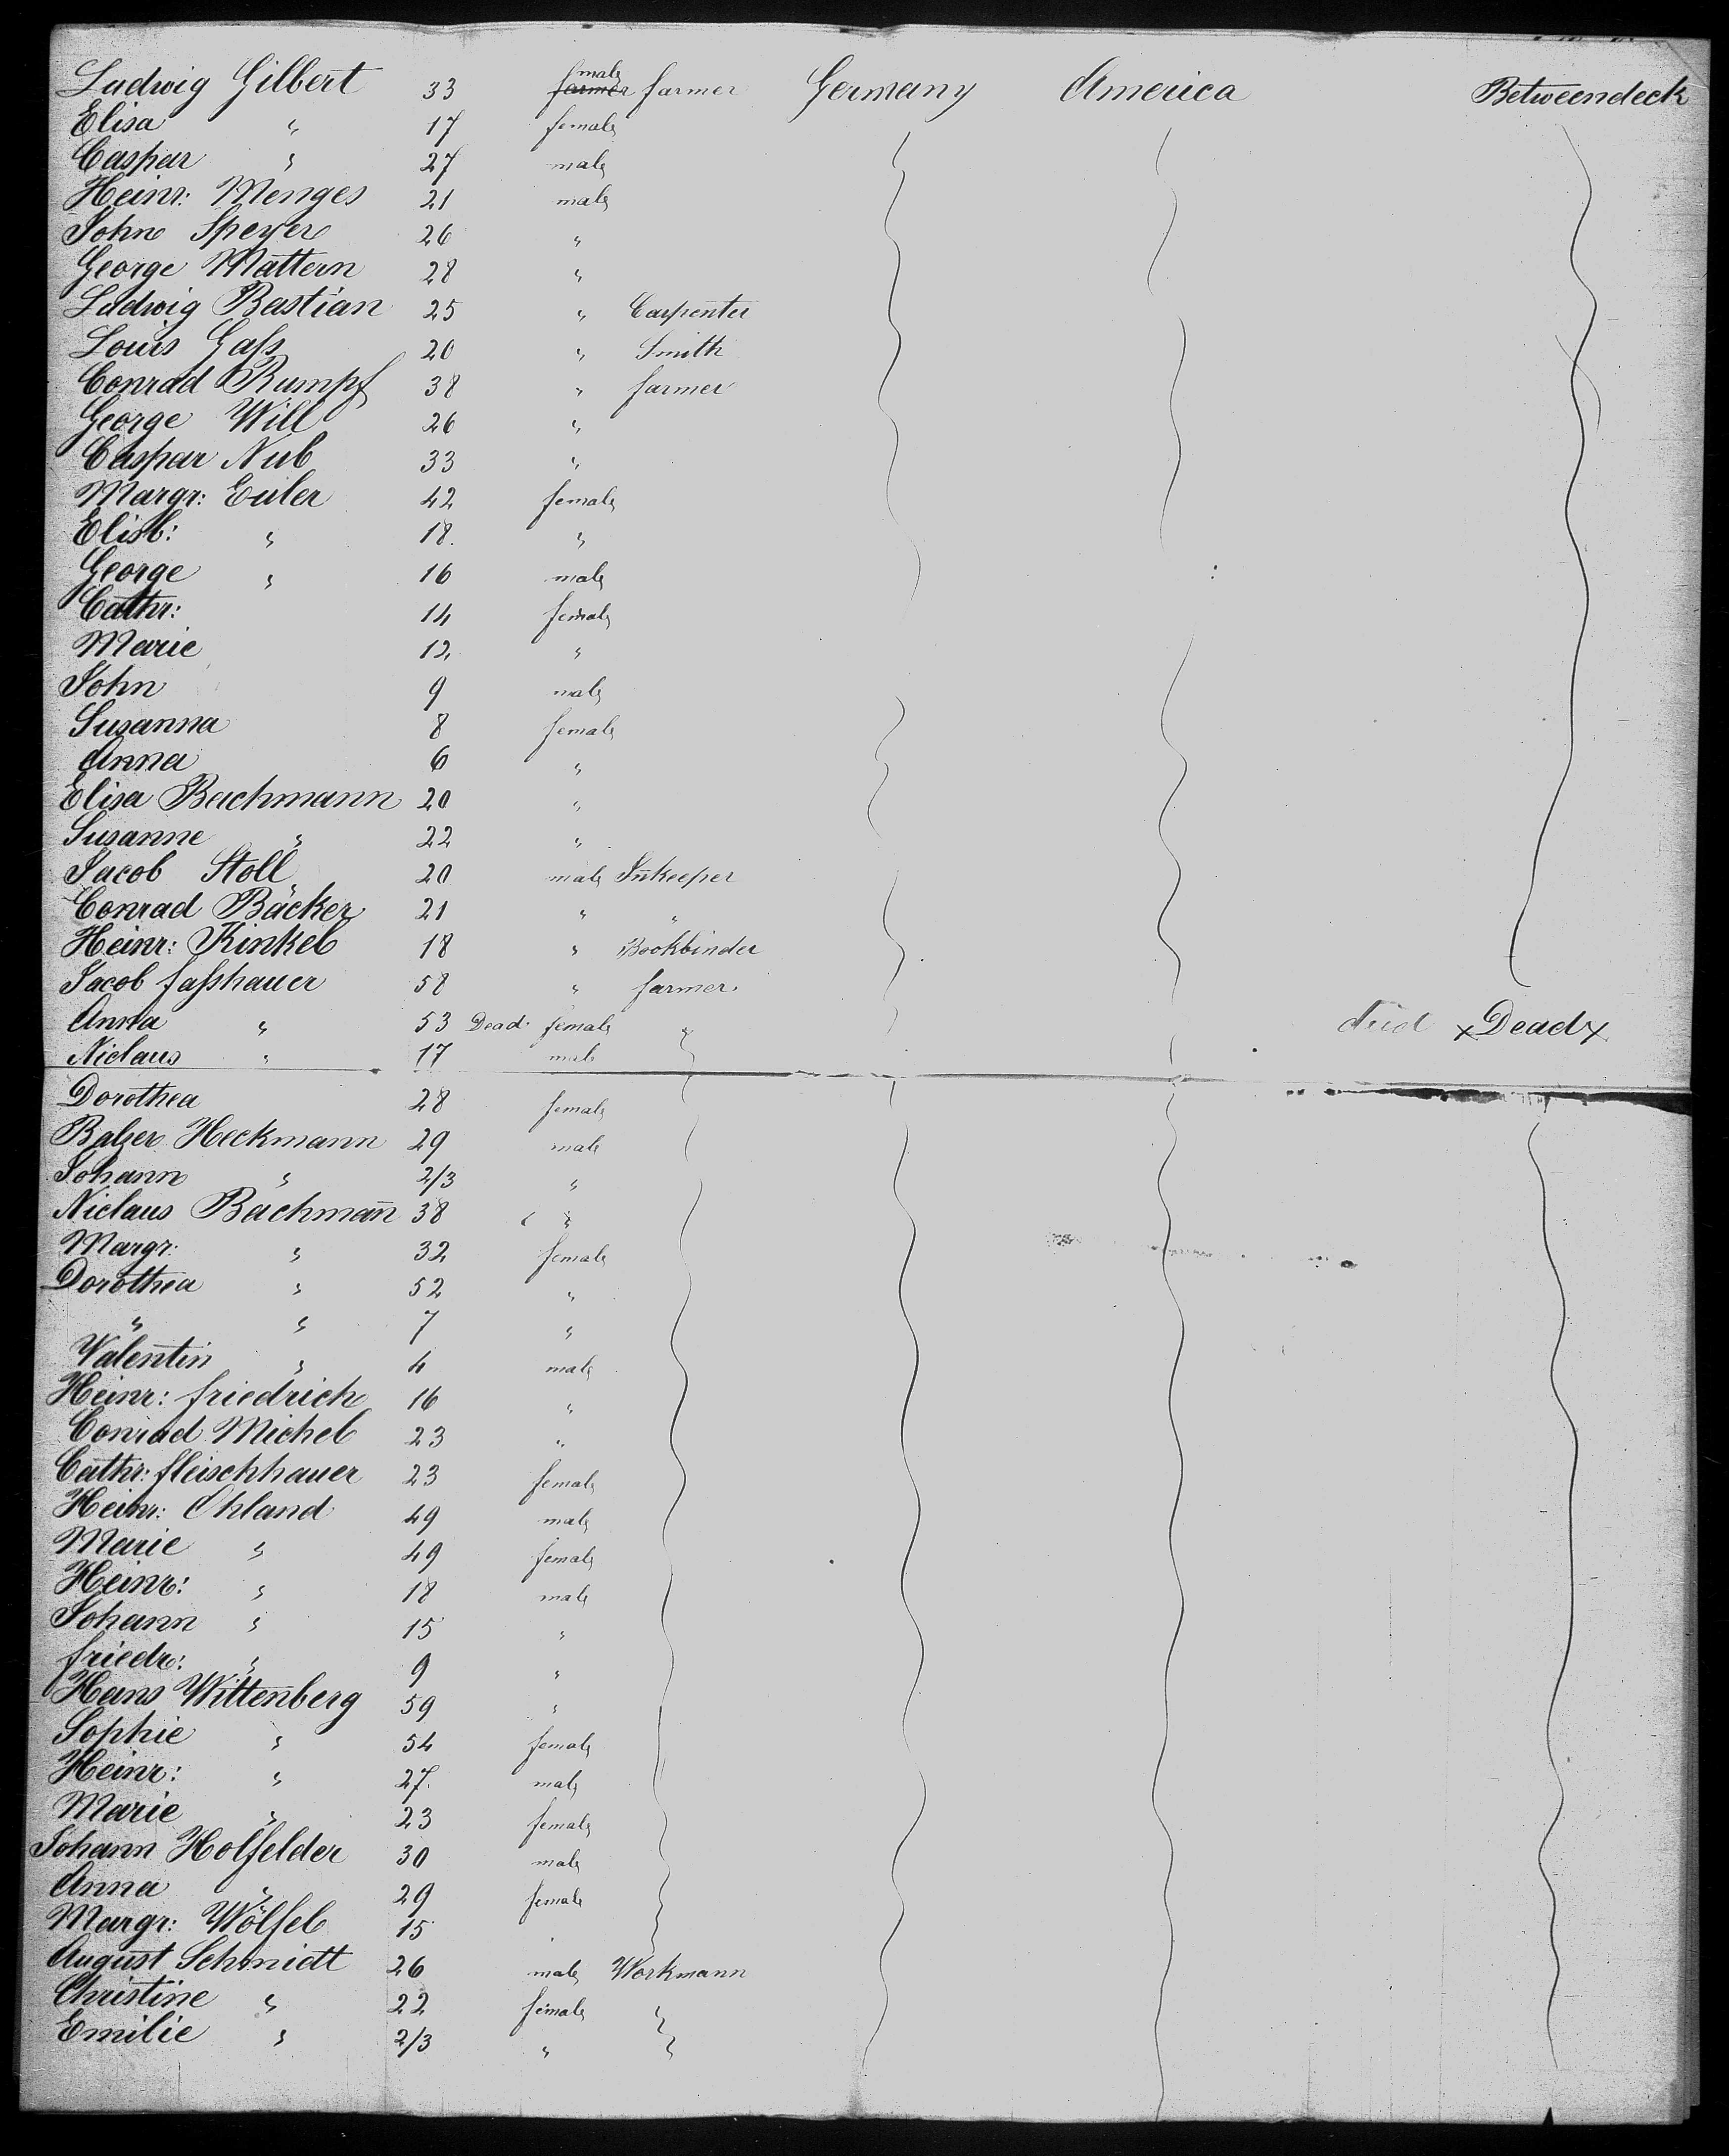 Ludwig Gilbert 33 male farmer farmer Germany America Betweendeck
Elisa " 17 female
Caspar " 27 male
Heinr: Menges 21 male
John Speyer 26 "
George Mattern 28 "
Ludwig Bastian 25 " Carpenter
Louis Gaſs 20 " Smith
Conrad Rumpf 38 " farmer
George Will 26 "
Caspar Nub 33 "
Margr: Euler 42 female
Elisb: " 18. "
George " 16 male
Cathr: 14 female
Marie 12 "
John 9 male
Susanna 8 female
Anna 6 "
Elisa Bachmann 20 "
Susanne " 22 "
Jacob Stoll 20 male Iñkeeper
Conrad Bäcker 21 " "
Heinr: Kinkel 18 " Bookbinder
Jacob faſshauer 58 " farmer.
Anna " 53 Dead. female " died x Dead x
Niclaus " 17 male
Dorothea 28 female
Balzer Heckmann 29 male
Johann " 2/3 "
Niclaus Bachmañ 38 "
Margr: " 32 female
Dorothea " 52 "
" " 7 "
Valentin " 4 male
Heinr: friedrich 16 "
Conrad Michel 23 "
Cathr: fleischhauer 23 female
Heinr: Ohland 49 male
Marie " 49 female
Heinr: " 18 male
Johann " 15 "
friedr: " 9 "
Hans Wittenberg 59 "
Sophie " 54 female
Heinr: " 27. male
Marie " 23 female
Johann Holfelder 30 male
Anna " 29 female
Margr: Wölfel 15
August Schmidt 26 male Workmann
Christine " 22 female "
Emilie " 2/3 " "